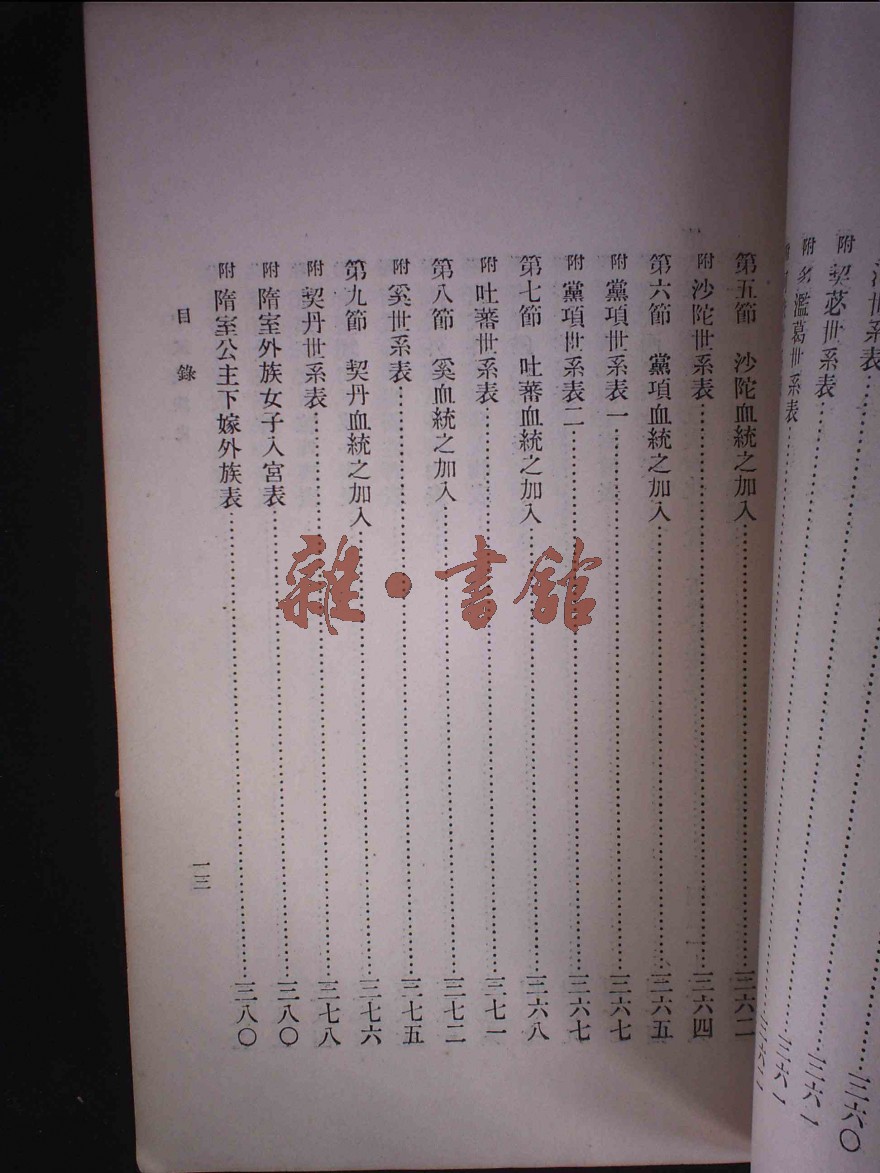 附 契苾世系表……三六〇
附 多濫葛世系表……三六一
第五節 沙陀血統之加入……三六二
附 沙陀世系表……三六四
第六節 黨項血統之加入……三六五
附 黨項世系表一……三六七
附 黨項世系表二……三六七
第七節 吐蕃血統之加入……三六八
附 吐蕃世系表……三七一
第八節 奚血統之加入……三七二
附 奚世系表……三七五
第九節 契丹血統之加入……三七六
附 契丹世系表……三七八
附 隋室外族女子入宮表……三八〇
附 隋室公主下嫁外族表……三八〇
目錄 一三
雜·書館